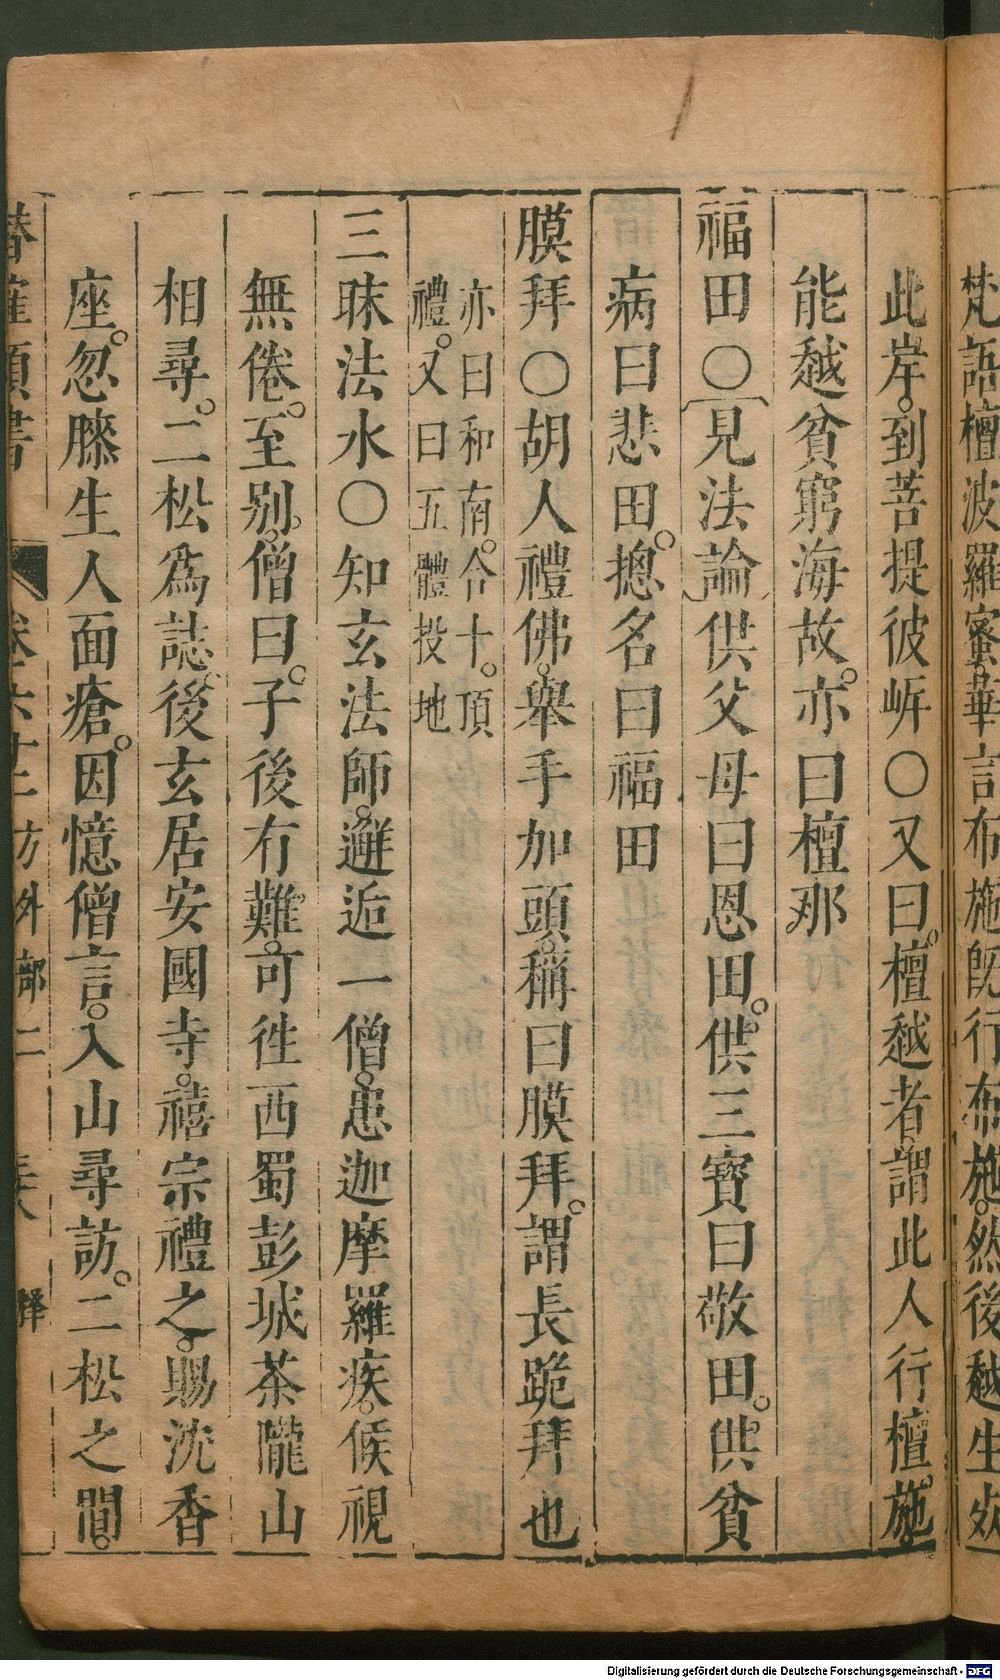 梵語檀波羅蜜華言布施既行布施。然後越生死
此岸。到菩提彼岍〇又曰。檀越者。謂此人行檀施。
能越貧窮海故。亦曰檀那
福田〇見法論供父母曰恩田。供三寶曰敬田。供貧
病曰悲田。摠名曰福田
膜拜〇胡人禮佛。舉手加頭。稱曰膜拜。謂長跪拜也
亦曰和南。合十。頂
禮。又曰五體投地
三昧法水〇知玄法師。邂逅一僧。患迦摩羅疾。候視
無倦。至别。僧曰。子後有難。可徃西蜀彭城茶隴山
相尋。二松爲誌。後玄居安國寺。禧宗禮之。賜沈香
座。忽膝生人面瘡。因憶僧言。入山尋訪。二松之間。
卷六十二方外部二 釋
Digitalisierung gefördert durch die Deutsche Forschungsgemeinschaft - DFG